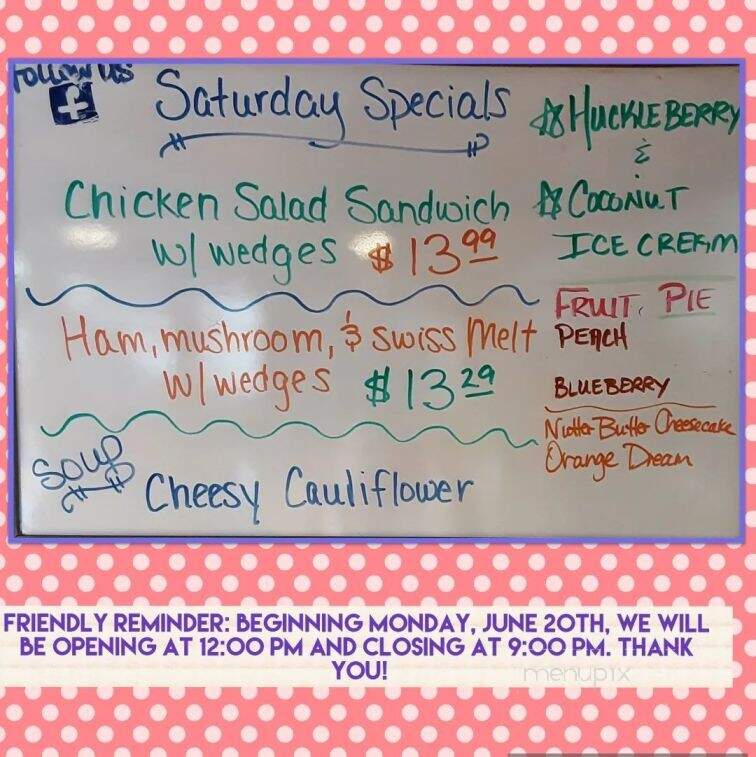 Follow us
Saturday Specials
Chicken Salad Sandwich
w/ wedges $13.99
Ham, mushroom, & swiss Melt
w/ wedges $13.29
Soup
Cheesy Cauliflower
HUCKLEBERRY
&
COCONUT
ICE CREAM
FRUIT PIE
PEACH
BLUEBERRY
Nutter Butter Cheesecake
Orange Dream
FRIENDLY REMINDER: BEGINNING MONDAY, JUNE 20TH, WE WILL
BE OPENING AT 12:00 PM AND CLOSING AT 9:00 PM. THANK
YOU!
menupix